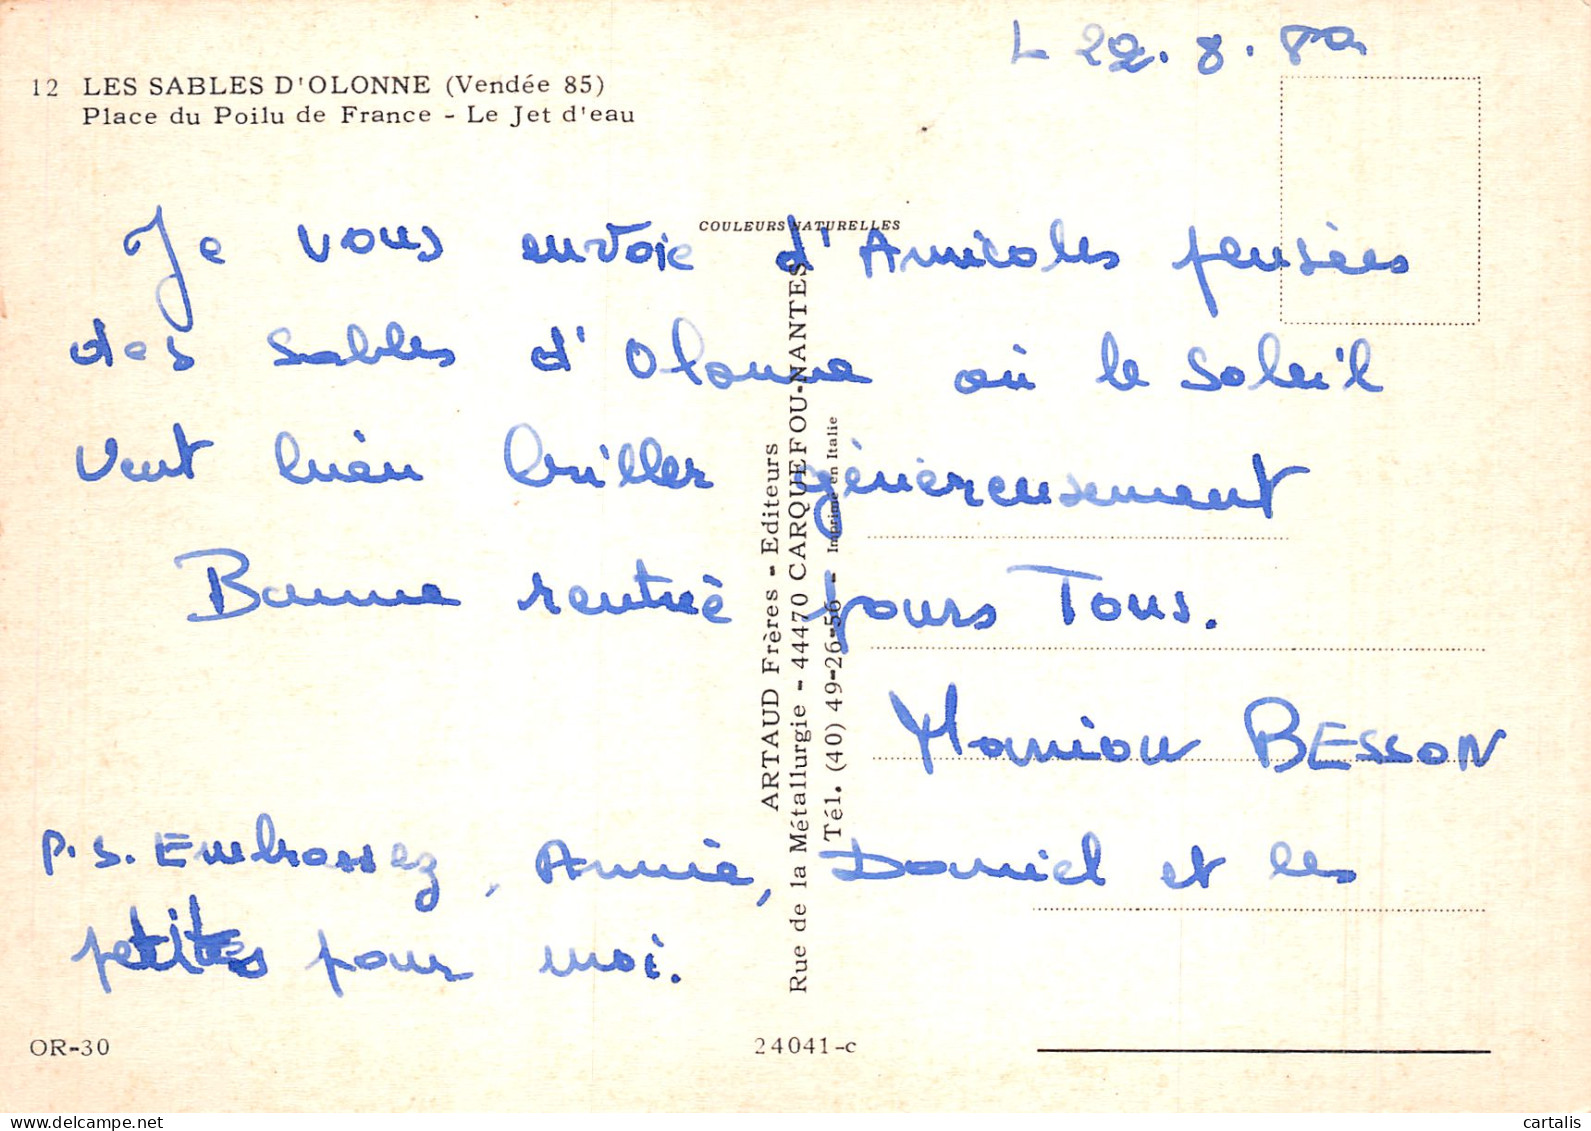 L 22.8.80
12 LES SABLES D'OLONNE (Vendée 85)
Place du Poilu de France - Le Jet d'eau
COULEURS NATURELLES
Je vous envoie d'Amicales pensées
des Sables d'Olonne où le soleil
veut bien briller génèreusement
Bonne rentrèe pours Tous.
Marion BESSON
P.S. Embrassez, Annie, Daniel et les
petites pour moi.
ARTAUD Frères - Editeurs
Rue de la Métallurgie - 44470 CARQUEFOU-NANTES
Tél. (40) 49-26-56 - Imprimé en Italie
OR-30
24041-c
cartalis